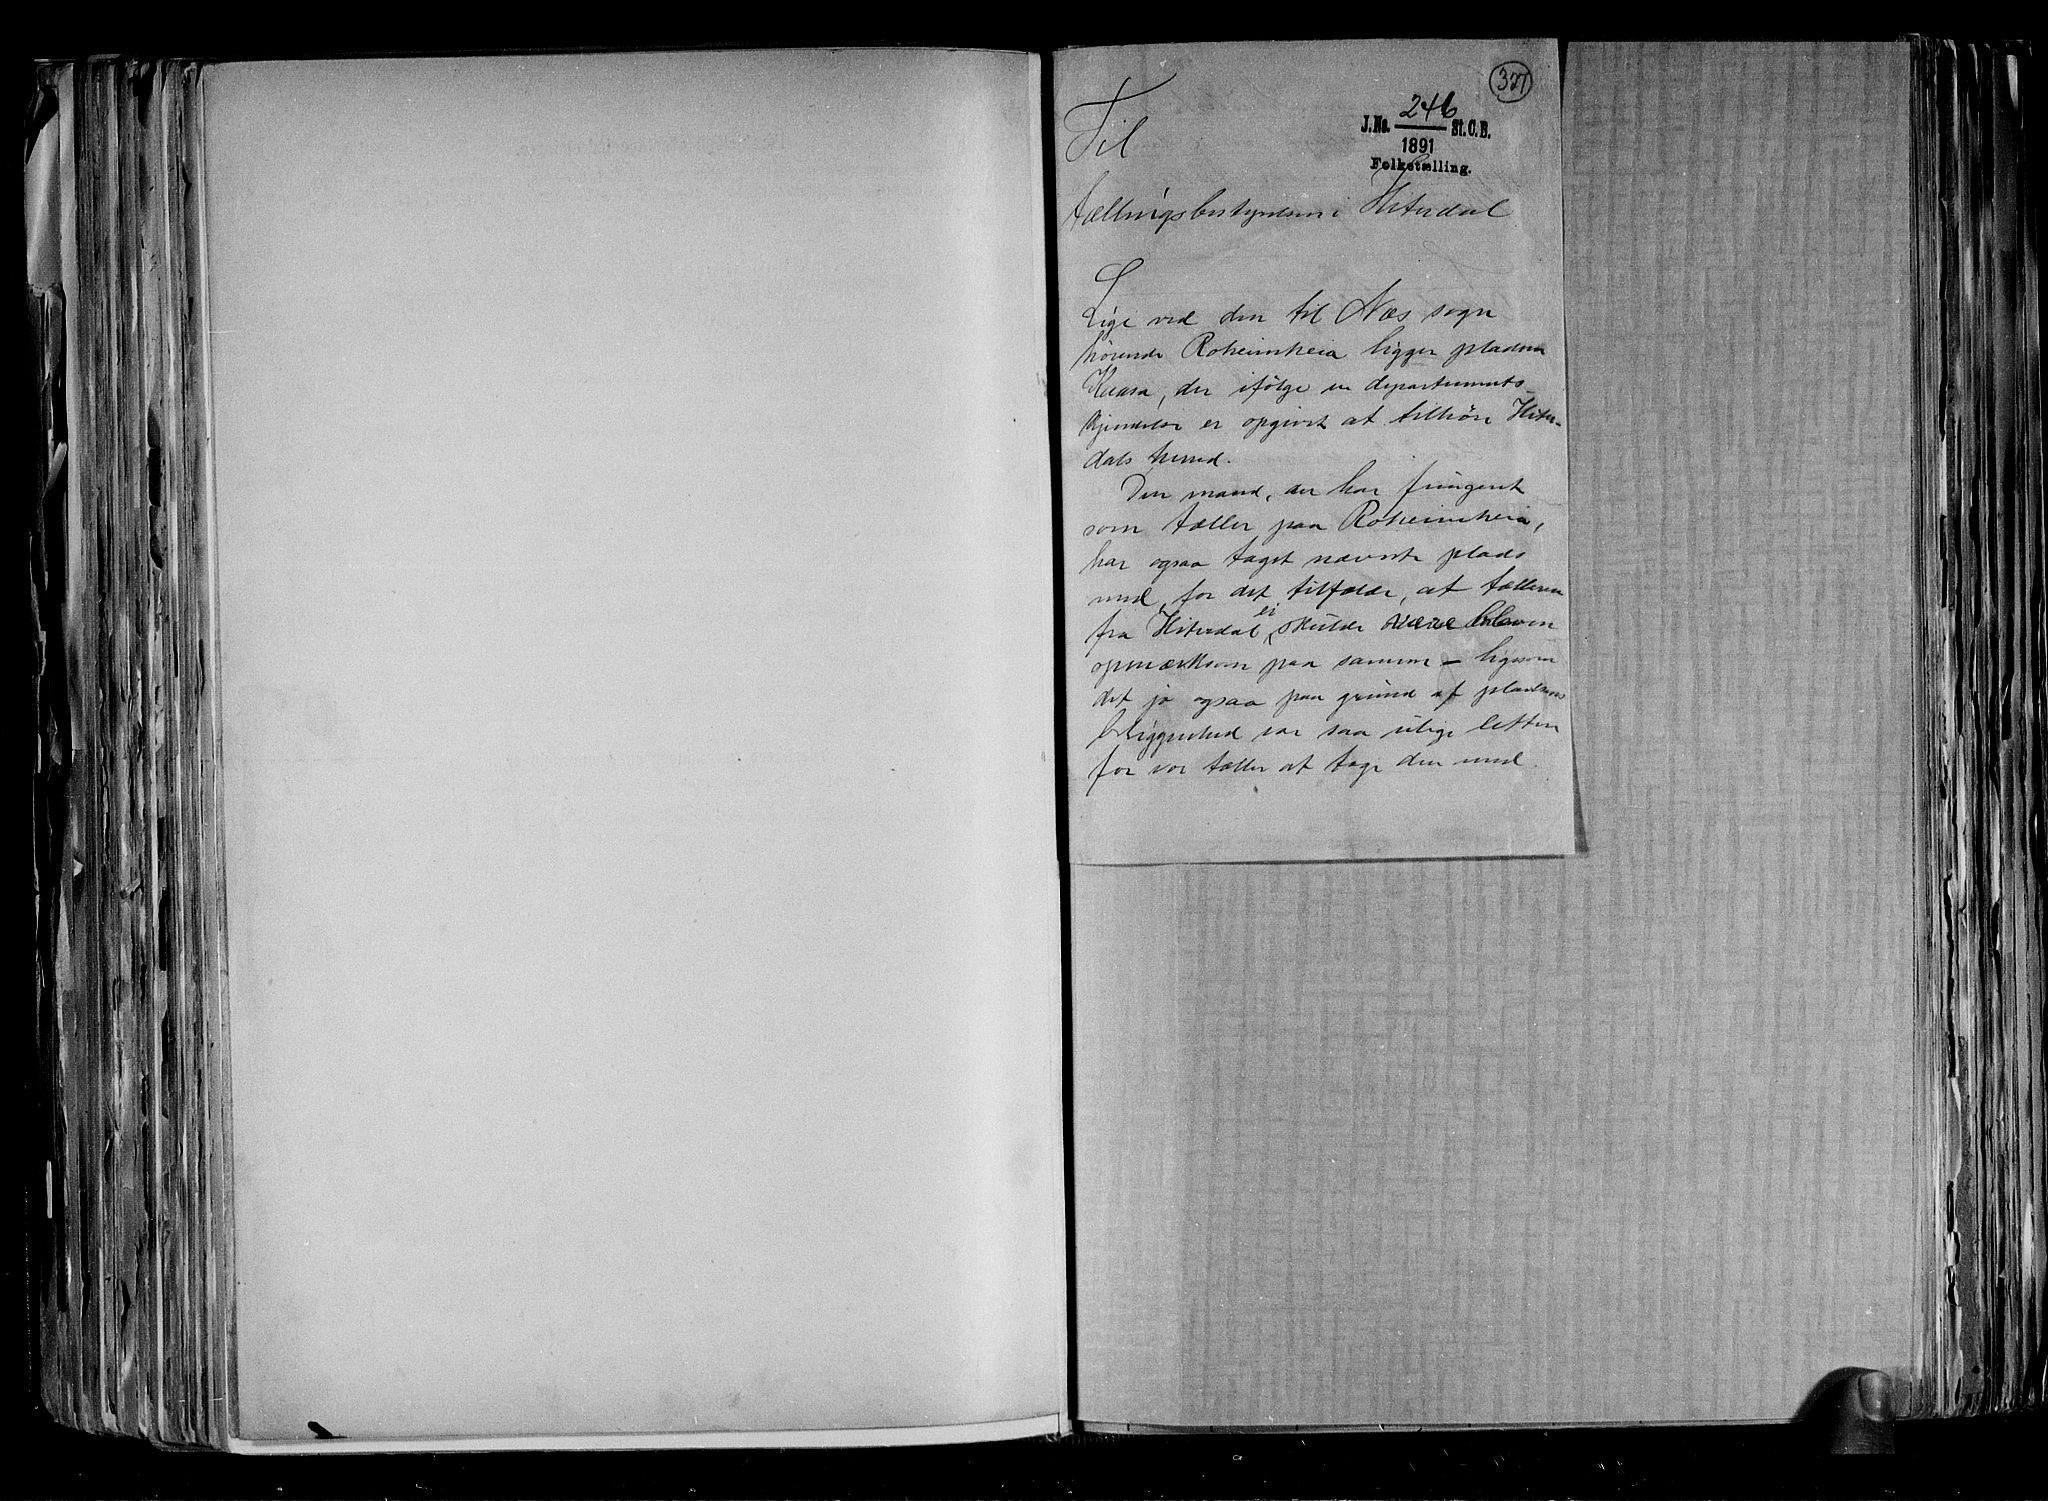 327
246
J.No. St.C.B.
1891
Folketælling.
Til
tællingsbestyrelsen i Hiterdal
Lige ved den til Næs sogn
hørende Roheimheia ligger pladsen
Kuasa, der ifølge en departements-
kjendelse er opgivet at tilhøre Hiter-
dals herred.
Den mand, der har fungeret
som tæller paa Roheimheia,
har ogsaa taget nævnte plads
med, for det tilfælde, at tælleren
fra Hiterdal ei skulde være bleven
opmærksom paa samme – ligesom
det jo ogsaa paa grund af pladsens
beliggenhed var saa ulige lettere
for vor tæller at tage den med.